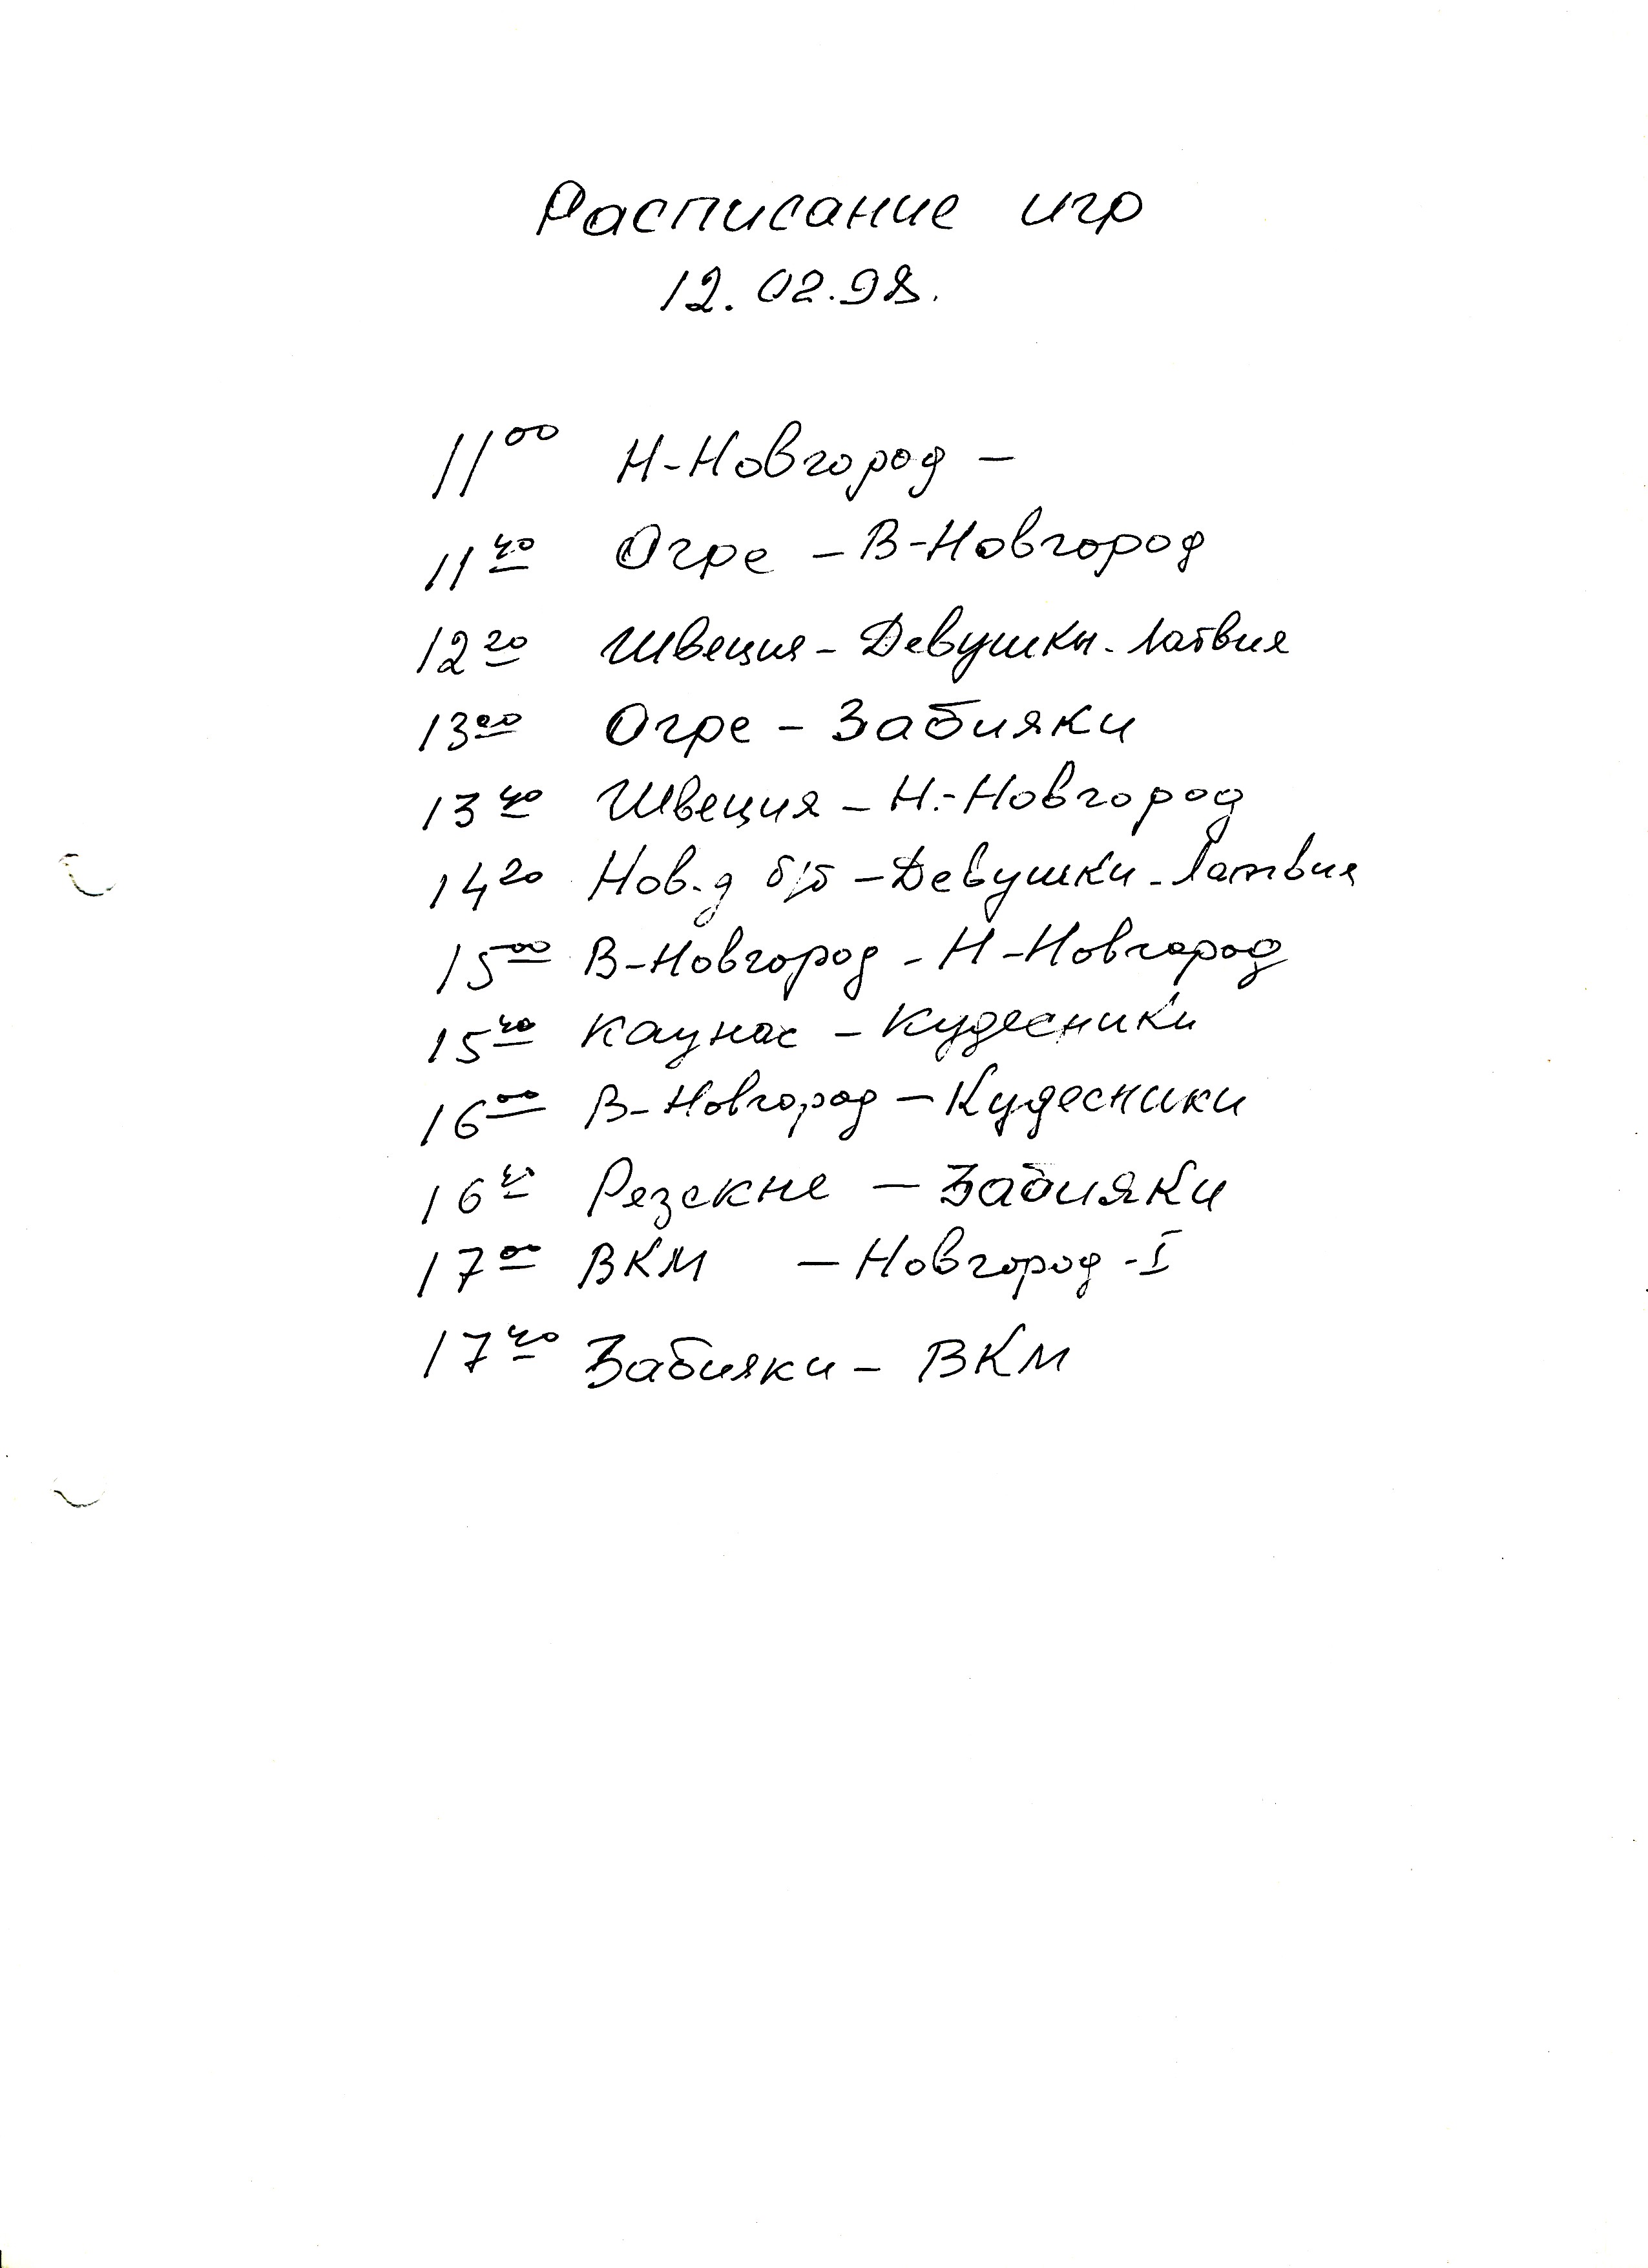 Расписание игр
12.02.98.
11 00 Н-Новгород -
11 40 Огре - В-Новгород
12 20 Швеция - Девушки - Латвия
13 00 Огре - Забияки
13 40 Швеция - Н.-Новгород
14 20 Нов. д б/б - Девушки - Латвия
15 00 В-Новгород - Н-Новгород
15 40 Каунас - Кудесники
16 00 В-Новгород - Кудесники
16 40 Резекне - Забияки
17 00 ВКМ - Новгород - I
17 40 Забияки - ВКМ